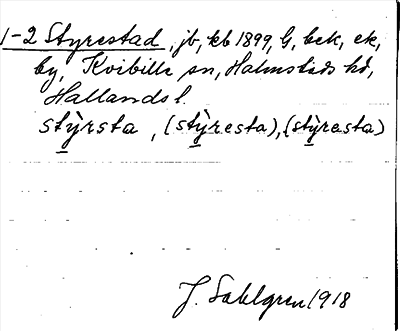 1-2 Styrestad, jb, kb 1899, G, bek, ek,
by, Kvibille sn, Halmstads hd,
Hallands l.
stỳrsta, (stỳresta), (stỳrasta)
J. Sahlgren 1918